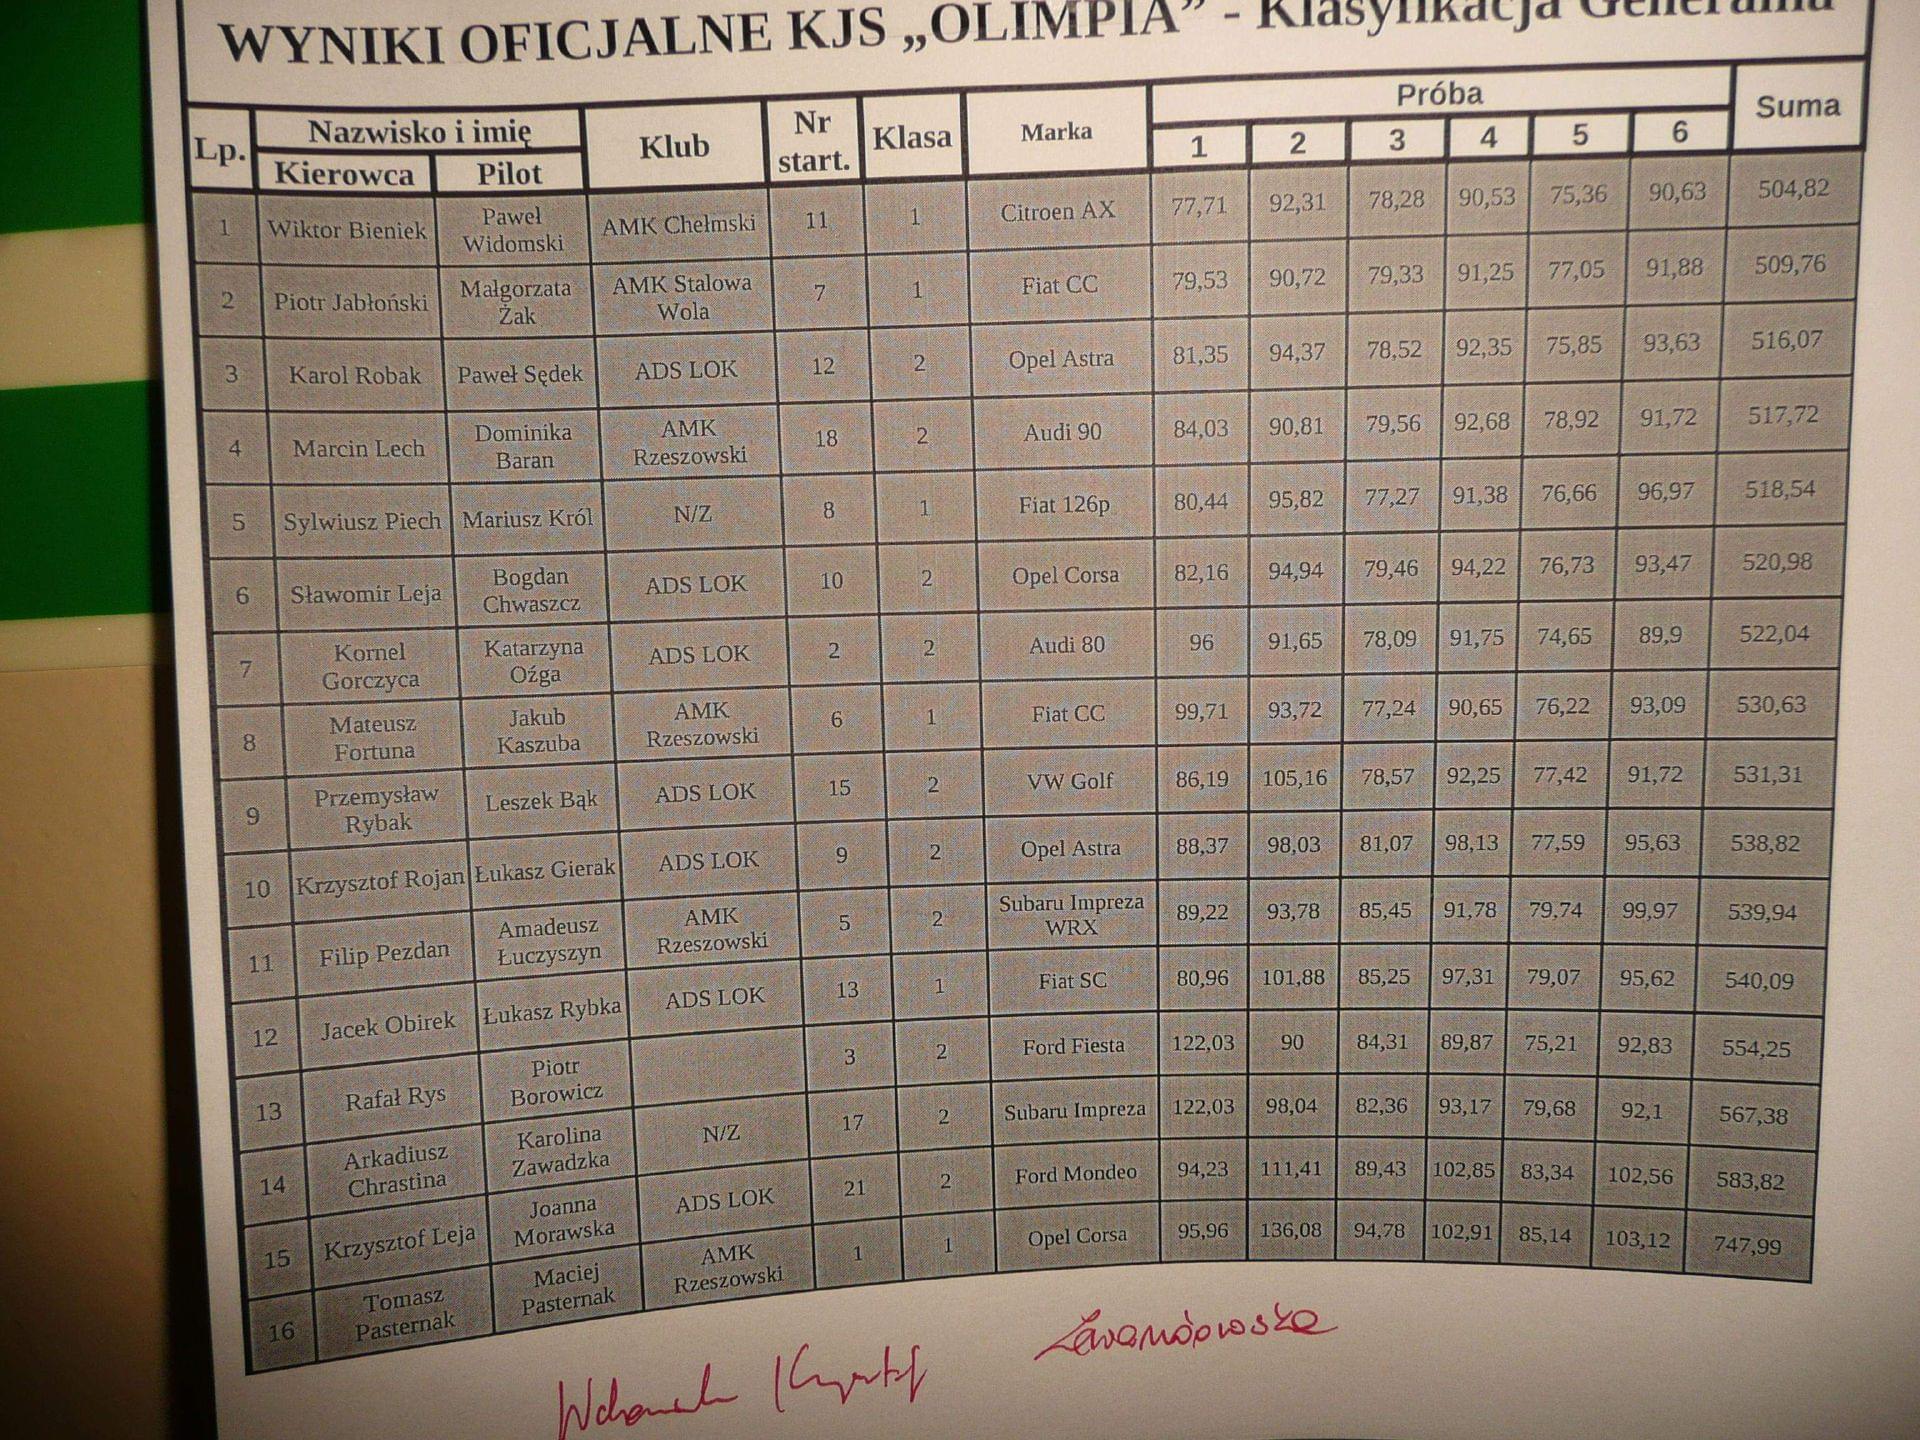 WYNIKI OFICJALNE KJS „OLIMPIA” - Klasyfikacja Generalna
Lp. Nazwisko i imię Klub Nr start. Klasa Marka Próba Suma
Kierowca Pilot 1 2 3 4 5 6
1 Wiktor Bieniek Paweł Widomski AMK Chełmski 11 1 Citroen AX 77,71 92,31 78,28 90,53 75,36 90,63 504,82
2 Piotr Jabłoński Małgorzata Żak AMK Stalowa Wola 7 1 Fiat CC 79,53 90,72 79,33 91,25 77,05 91,88 509,76
3 Karol Robak Paweł Sędek ADS LOK 12 2 Opel Astra 81,35 94,37 78,52 92,35 75,85 93,63 516,07
4 Marcin Lech Dominika Baran AMK Rzeszowski 18 2 Audi 90 84,03 90,81 79,56 92,68 78,92 91,72 517,72
5 Sylwiusz Piech Mariusz Król N/Z 8 1 Fiat 126p 80,44 95,82 77,27 91,38 76,66 96,97 518,54
6 Sławomir Leja Bogdan Chwaszcz ADS LOK 10 2 Opel Corsa 82,16 94,94 79,46 94,22 76,73 93,47 520,98
7 Kornel Gorczyca Katarzyna Oźga ADS LOK 2 2 Audi 80 96 91,65 78,09 91,75 74,65 89,9 522,04
8 Mateusz Fortuna Jakub Kaszuba AMK Rzeszowski 6 1 Fiat CC 99,71 93,72 77,24 90,65 76,22 93,09 530,63
9 Przemysław Rybak Leszek Bąk ADS LOK 15 2 VW Golf 86,19 105,16 78,57 92,25 77,42 91,72 531,31
10 Krzysztof Rojan Łukasz Gierak ADS LOK 9 2 Opel Astra 88,37 98,03 81,07 98,13 77,59 95,63 538,82
11 Filip Pezdan Amadeusz Łuczyszyn AMK Rzeszowski 5 2 Subaru Impreza WRX 89,22 93,78 85,45 91,78 79,74 99,97 539,94
12 Jacek Obirek Łukasz Rybka ADS LOK 13 1 Fiat SC 80,96 101,88 85,25 97,31 79,07 95,62 540,09
13 Rafał Rys Piotr Borowicz 3 2 Ford Fiesta 122,03 90 84,31 89,87 75,21 92,83 554,25
14 Arkadiusz Chrastina Karolina Zawadzka N/Z 17 2 Subaru Impreza 122,03 98,04 82,36 93,17 79,68 92,1 567,38
15 Krzysztof Leja Joanna Morawska ADS LOK 21 2 Ford Mondeo 94,23 111,41 89,43 102,85 83,34 102,56 583,82
16 Tomasz Pasternak Maciej Pasternak AMK Rzeszowski 1 1 Opel Corsa 95,96 136,08 94,78 102,91 85,14 103,12 747,99